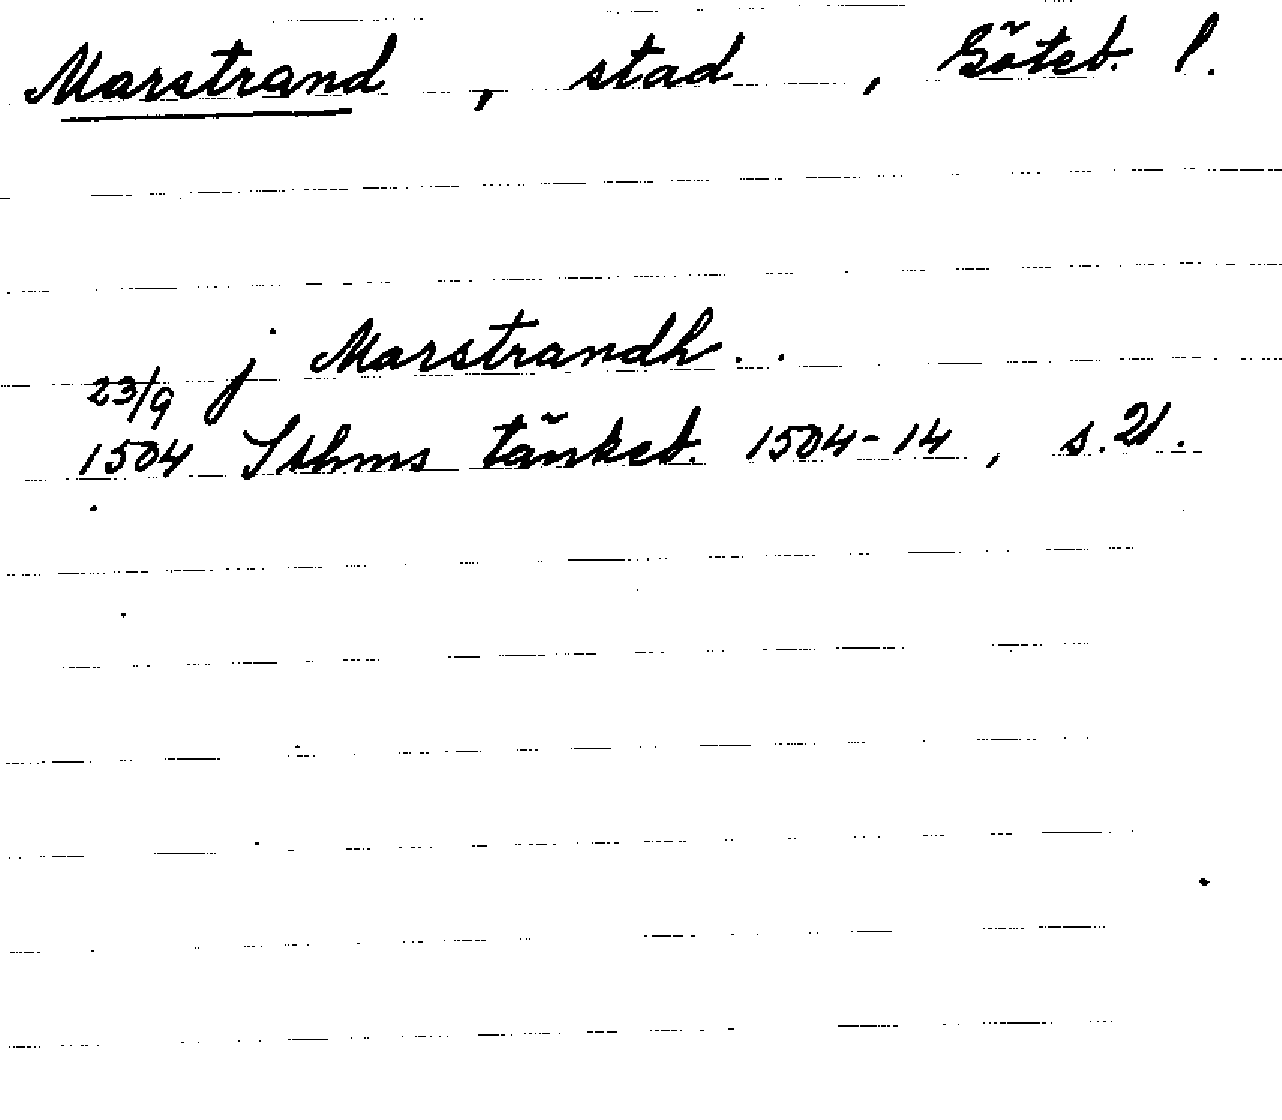 Marstrand, stad, Göteb. l.
j Marstrandh..
23/9
1504 Sthms tänkeb. 1504-14, s. 21.